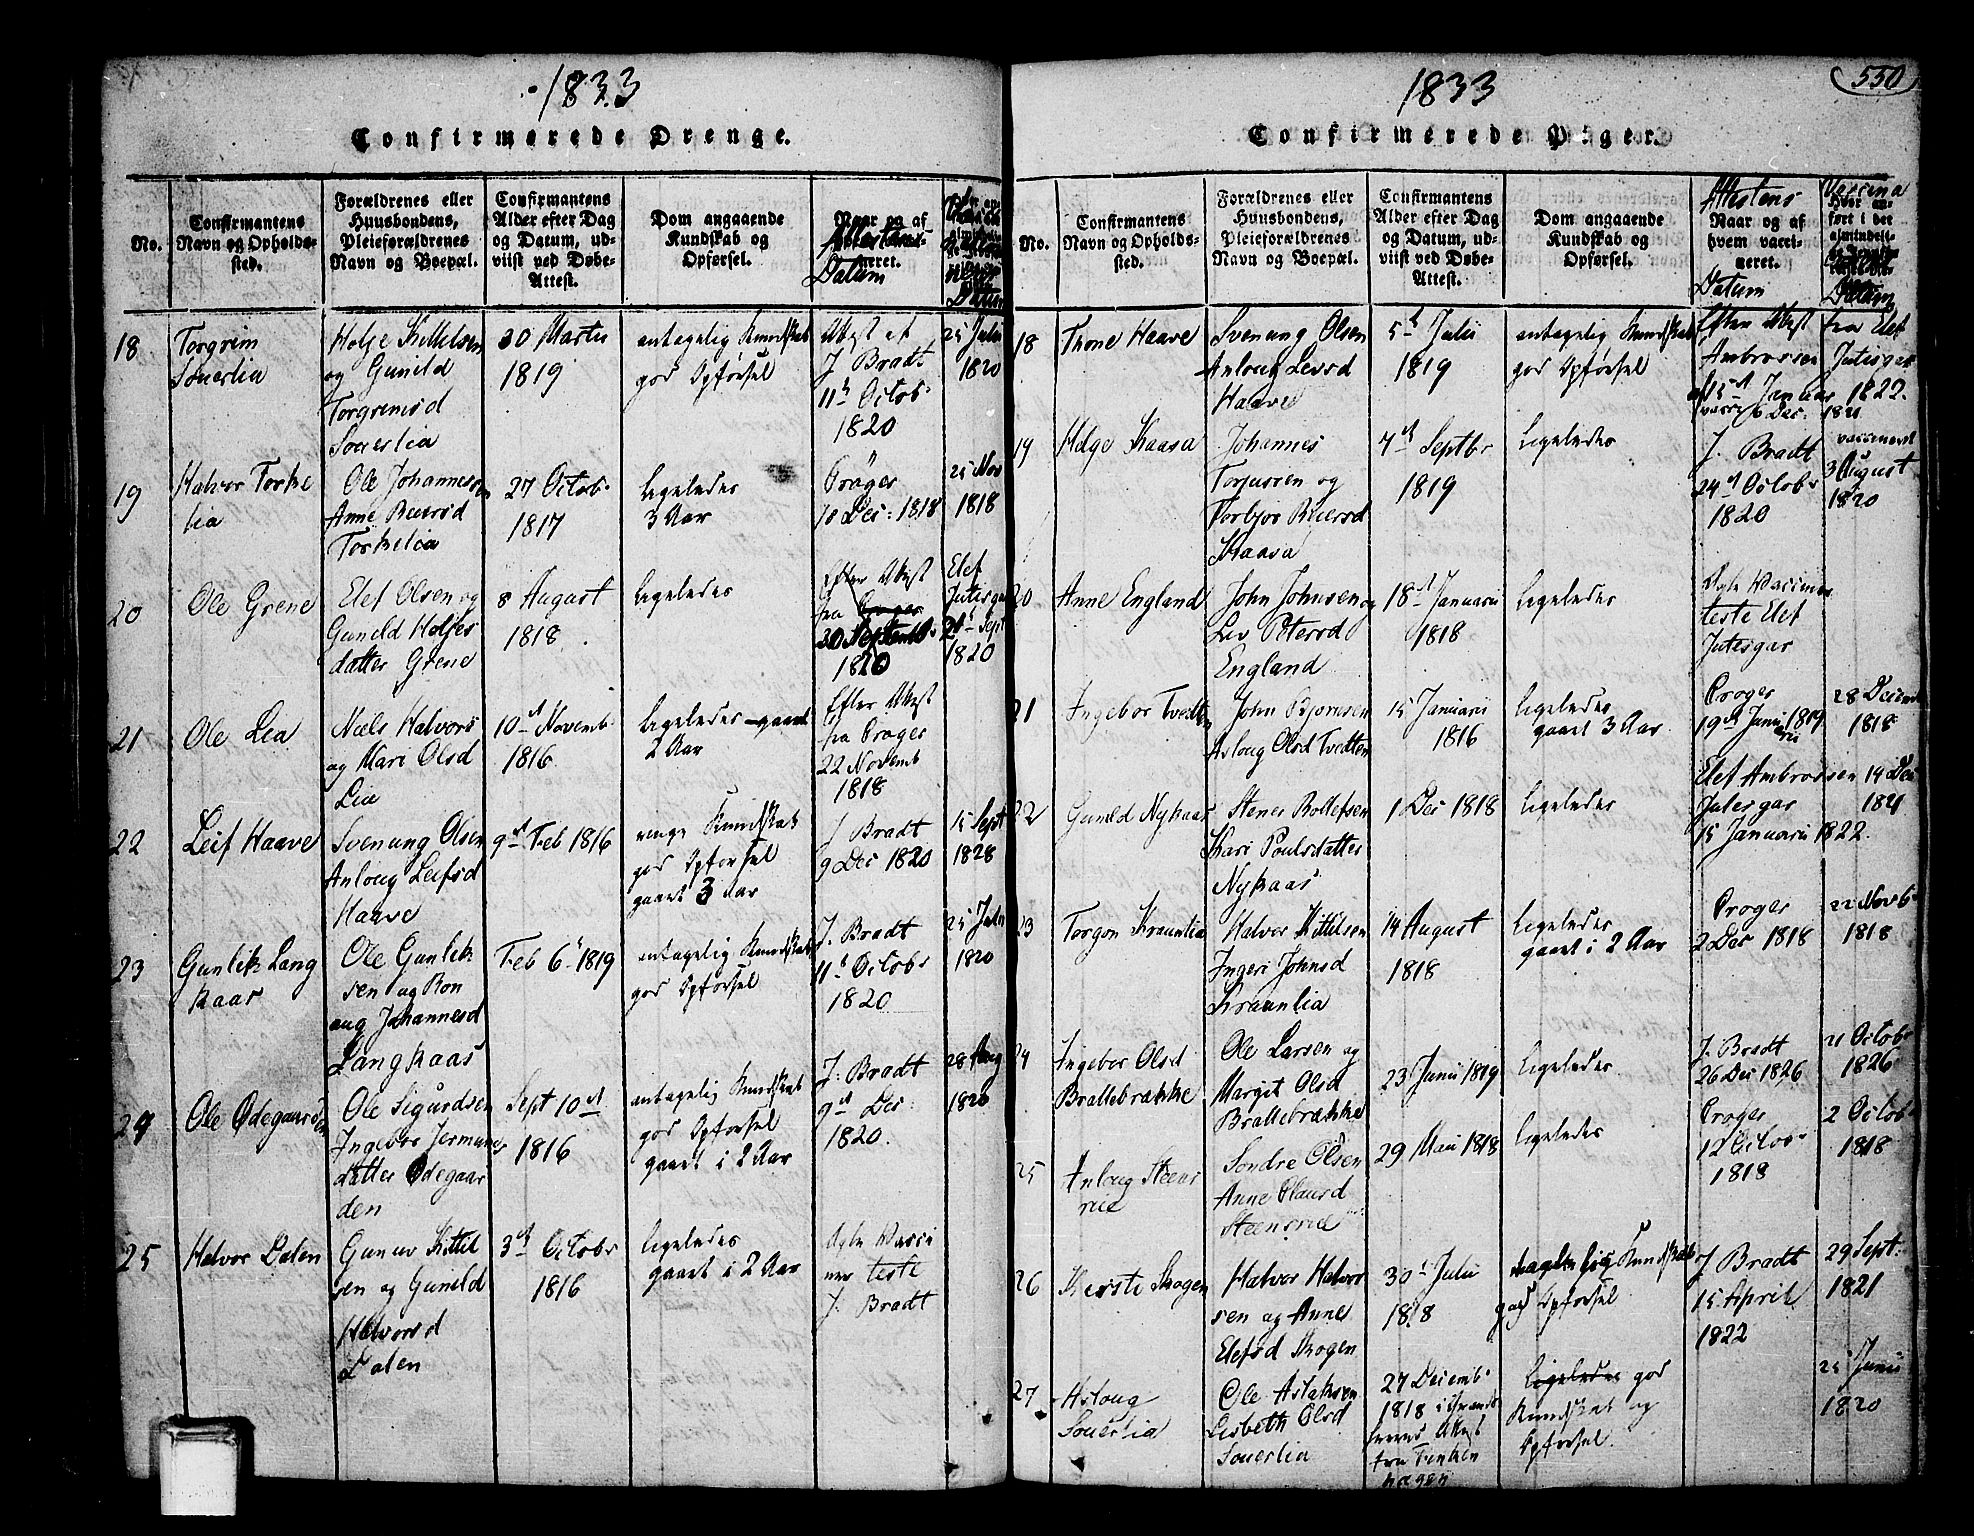 1833
Confirmerede Drenge.
No.
Confirmantens
Navn og Opholds-
sted.
Forældrenes eller
Huusbondens,
Pleieforældrenes
Navn og Boepæl.
Confirmantens
Alder efter Dag
og Datum, ud-
viist ved Døbe-
Attest.
Dom angaaende
Kundskab og
Opførsel.
Naar og af
Attestens
Datum
neret.
Datum
18
Torgrim
Souerlia
Holje Kittilsen
og Gunild
Torgrimsd
Souerlia
30 Martii
1819
antagelig Kundskab
god Opførsel
Attest af
J. Bradt
11t Octob.
1820
25 Julii
1820
19
Halvor Torke
lia
Ole Johannessen
Anne Beersd
Torkelia
27 Octob.
1817
ligeledes
3 Aar
Crøger
18 Dec: 1818
25 Nov
1818
20
Ole Grene
Elef Olsen og
Gunild Holjes
datter Grene
8 August
1818.
ligeledes
Efter Attest
fra Crøger
30 Septemb.
1820
Elef
Jutesgar
21t Sept
1820
21
Ole Lia
Niels Halvors
og Mari Olsd
Lia
10de Novemb
1816
ligeledes gaaet
2 Aar
Efter Attest
fra Croger
22 Novemb
1818
22
Leif Haave
Svenung Olsen
Anloug Leifsd
Haave
9de Feb 1816
ringe Kundskab
god Opførsel
gaaet 3 Aar
J Bradt
9 Dec 1820
15 Sept
1828
23
Gunlik Lang
kaas
Ole Gunlik
sen og Ron
aug Johannesd
Langkaas
Feb 6t 1819
antagelig Kundskab
god Opførsel
J. Bradt
11t Octobr
1820
25 Julii
1820
24
Ole Ødegaarden
Ole Sigurdsen
Ingebor Jermunds
datter Ødegaar
den
Sept 10de
1816
antagelig Kundskab
god Opførsel
gaaet i 2 Aar
J. Bradt
9de Dec:
1820.
28 Aug
1820
25
Halvor Dalen
Gunuv Kittil
sen og Gunild
Halvorsd
Dalen
3de Octobr
1816
ligeledes
gaaet i 2 Aar
teste
J. Bradt
1833
550
Confirmerede Piger.
No.
Confirmantens
Navn og Opholds-
sted.
Forældrenes eller
Huusbondens,
Pleieforældrenes
Navn og Boepæl.
Confirmantens
Alder efter Dag
og Datum, ud-
viist ved Døbe-
Attest.
Dom angaaende
Kundskab og
Opførsel.
Attestens
Naar og af
hvem vacci-
neret.
Datum
Vaccina
ført i det
almindeli-
Datum
18
Thone Haave
Svenung Olsen
Anloug Leivsd
Haave
5t Julii
1819
antagelig Kundskab
god Opførsel
Efter Attest fra Elef
Ambrossen Jutesgar
af 15de Januar 1822.
vacc: 6 Dec: 1821
19
Helge Kaasa
Johannes
Torjussen og
Torbjør Beersd
Kaasa
7de Septbr
1819
ligeledes
J. Bradt
24de Octobr
1820
vaccineret
3 August
1820
20
Anne England
John Johnsen og
Liv Petersd
England
18de Januarii
1818
ligeledes
teste Elef
Jutesgar
21
Ingebor Tvedten
John Bjornsen
Asloug Olsd Tvedten
15 Januarii
1816
ligeledes
gaaet 3 Aar
Croger
19de Janu 1819
arii
28 Decemb
1818
22
Gunild Nykaas
Stener Rollefsen
Kari Poulsdatter
Nykaas
1 Dec 1818
ligeledes
Elef Ambrossen
Jutesgar
15 Januarii 1822.
14 Dec
1821
23
Torgon Kraunlia
Halvor Kittilsen
Ingeri Johnsd
Kraunlia
14 August
1818
ligeledes
gaaet i 2 Aar
Croger
2 Dec 1818
22 Novb.
1818
24
Ingebor Olsd
Brattebrække
Ole Larsen og
Margit Olsd
Brattebrække
23 Junii 1819
ligeledes
J. Bradt
26 Dec 1826
21 Octobr
1826
25
Anloug Steens
rue
Sondre Olsen
Anne Olausd
Steensrue
29 Maii 1818
ligeledes
Croger
12 Octob.
1818
2 Octob.
1818
26
Kerste Skogen
Halvor Halvor
sen og Anne
Elefsd Skogen
30t Julii
1818
Kundskab
god Opførsel
J Bradt
15 April
1822
29 Sept.
1821
27
Asloug
Souerlia
Ole Aslaksen
Lisbeth Olsd
Souerlia
27 Decemb.
1818
Attest
fra Finken
hagen
Ligeledes god
Kundskab og
Opførsel.
25 Junii
1820